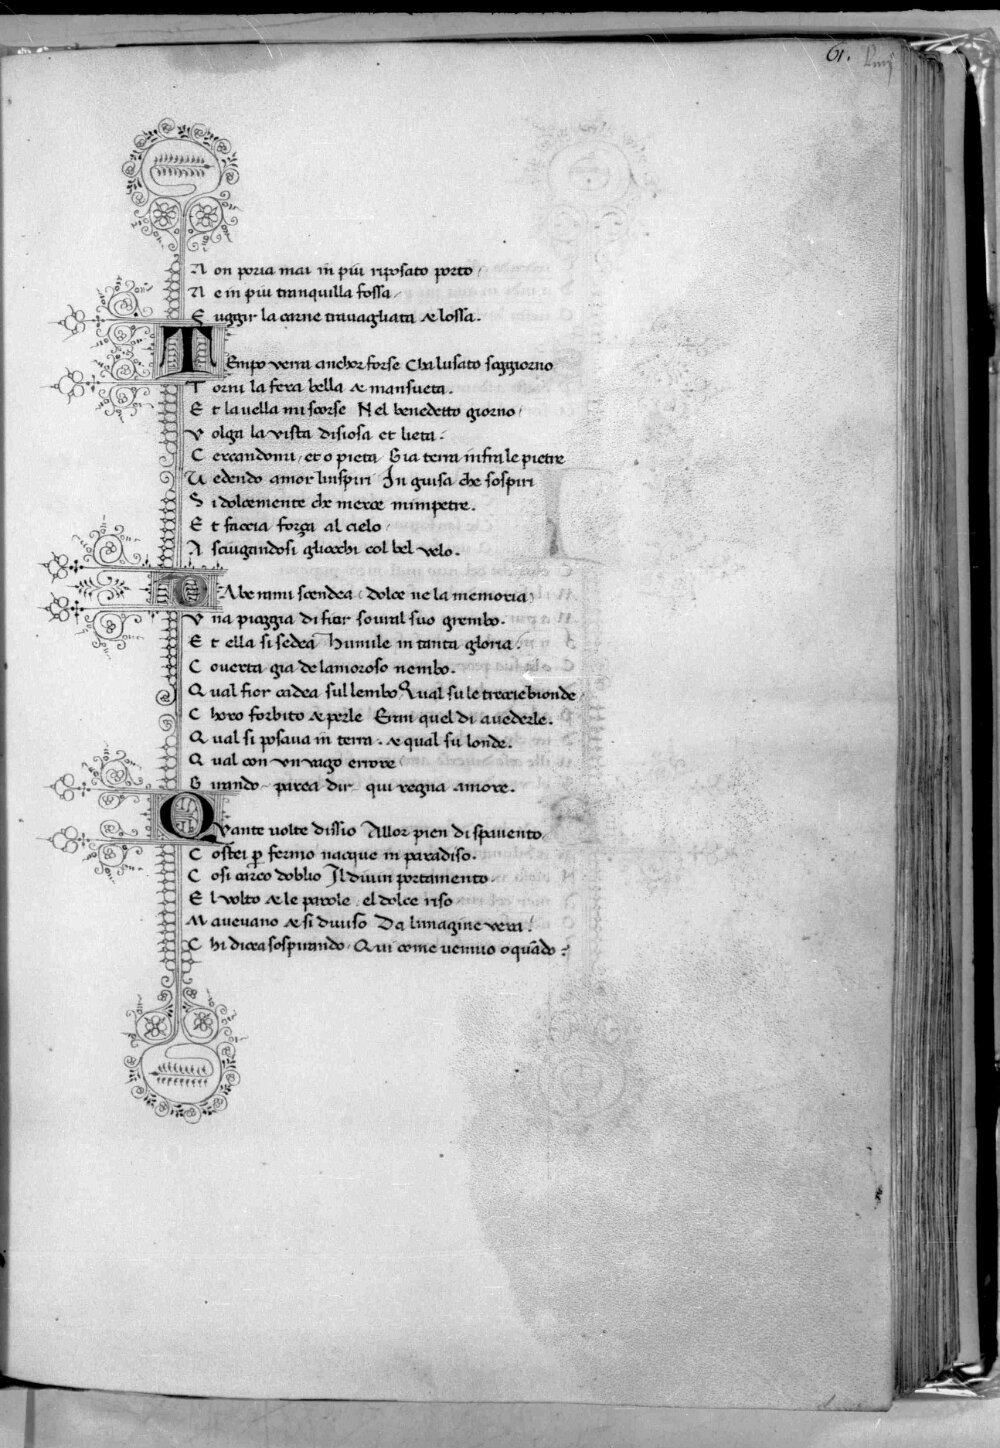 61.
N on poria mai in piu riposato porto
N e in piu tranquilla fossa
F uggir la carne travagliata & lossa.
TEmpo verra anchor forse Chalusato soggiorno
T orni la fera bella & mansueta.
E t la uella mi scorse Nel benedetto giorno
V olga la vista disiosa et lieta.
C ercandomi et o pieta Gia terra infra le pietre
U edendo amor linspiri In guisa che sospiri
S i dolcemente che merce mimpetre.
E t faccia força al cielo
A sciugandosi gliocchi col bel velo.
DAbe rami scendea dolce ne la memoria
V na pioggia di fior soural suo grembo.
E t ella si sedea Humile in tanta gloria
C overta gia de lamoroso nembo.
Q ual fior cadea sul lembo Qual su le treccie bionde
C horo forbito & perle Eran quel di auederle.
Q ual si posaua in terra. & qual su londe.
Q ual con un vago errore
G irando parea dir qui regna amore.
QVante uolte dissio Allor pien di spauento
C ostei ꝑ fermo nacque in paradiso.
C osi carco doblio Il diuin portamento
E l volto & le parole el dolce riso
M avevano & si diuiso Da limagine vera
C hi dicea sospirando Qui come uennio o quādo